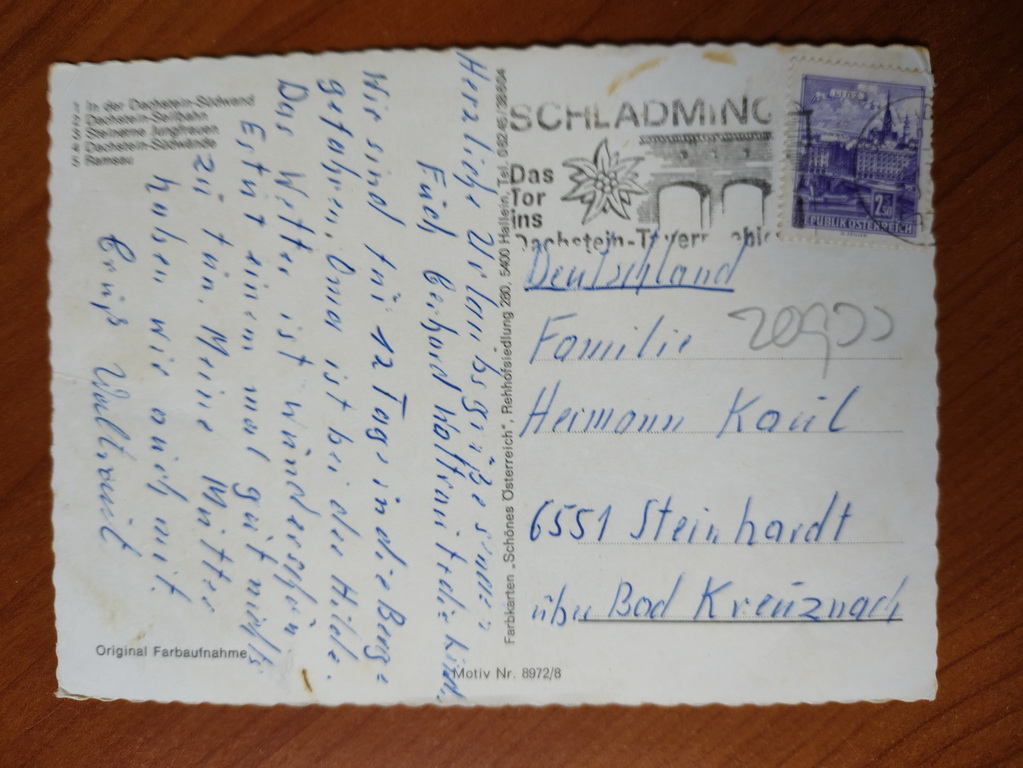 In der Dachstein-Südwand
Dachstein-Seilbahn
Steinerne Jungfrauen
Dachstein-Südwände
Ramsau
Herzliche Urlaubsgrüße senden
Euch Gerhard Waltraut die Kind.
Wir sind für 12 Tage in die Berge
gefahren, Oma ist bei der Hilde.
Das Wetter ist wunderschön
Es tut einem mal gut nichts
zu tun. Meine Mutter
haben wir auch mit.
Gruß Waltraut
Original Farbaufnahme
Motiv Nr. 8972/8
Farbkarten „Schönes Österreich“, Rehhofsiedlung 280, 5400 Hallein, Tel. 06245/28604
SCHLADMING
Das
Tor
ins
Dachstein-Tauern
LINZ
2.50
REPUBLIK ÖSTERREICH
Deutschland
Familie
Hermann Kaul
6551 Steinhardt
über Bad Kreuznach